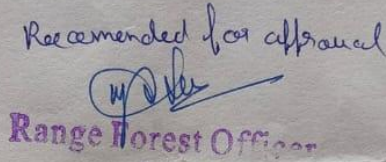 Recommended for approval
Range Forest Officer